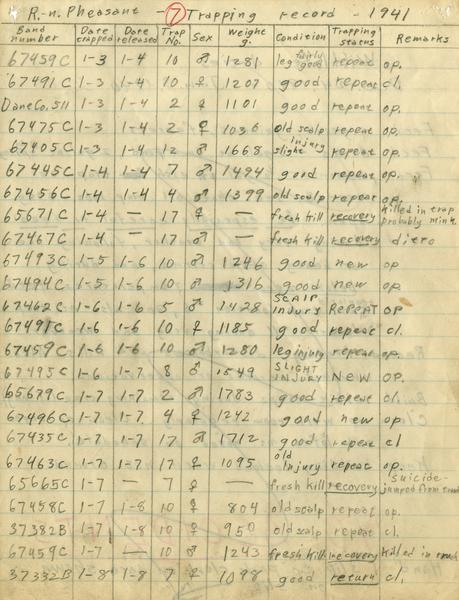 R.-n. Pheasant - 7 Trapping record - 1941
Band number Date trapped Date released Trap No. Sex Weight g. Condition Trapping status Remarks
67459C 1-3 1-4 10 ♂ 1281 leg fairly good repeat op.
67491C 1-3 1-4 10 ♀ 1207 good repeat cl.
Dane Co. 511 1-3 1-4 2 ♀ 1101 good repeat op.
67475C 1-3 1-4 2 ♀ 1036 old scalp injury repeat op.
67405C 1-3 1-4 12 ♂ 1668 slight repeat op.
67445C 1-4 1-4 7 ♂ 1494 good repeat op.
67456C 1-4 1-4 4 ♂ 1399 old scalp repeat op.
65671C 1-4 — 17 ♀ — fresh kill recovery killed in trap probably mink
67467C 1-4 — 17 ♂ — fresh kill recovery ditto
67493C 1-5 1-6 10 ♂ 1246 good new op
67494C 1-5 1-6 10 ♂ 1316 good new op.
67462C 1-6 1-6 5 ♂ 1428 SCALP INJURY REPEAT OP
67491C 1-6 1-6 10 ♀ 1185 good repeat cl.
67459C 1-6 1-6 10 ♂ 1280 leg injury repeat op.
67495C 1-6 1-7 8 ♂ 1549 SLIGHT INJURY NEW OP.
65679C 1-7 1-7 2 ♂ 1783 good repeat cl.
67496C 1-7 1-7 4 ♀ 1242 good new op.
67435C 1-7 1-7 17 ♂ 1712 good repeat cl
67463C 1-7 1-7 17 ♀ 1095 old injury repeat op.
65665C 1-7 — 7 ♀ — fresh kill recovery suicide- jumped from
67458C 1-7 1-8 10 ♀ 804 old scalp repeat op.
37382B 1-7 1-8 10 ♀ 950 old scalp repeat cl.
67459C 1-7 — 10 ♂ 1243 fresh kill recovery killed in
37332B 1-8 1-8 7 ♀ 1098 good return cl.